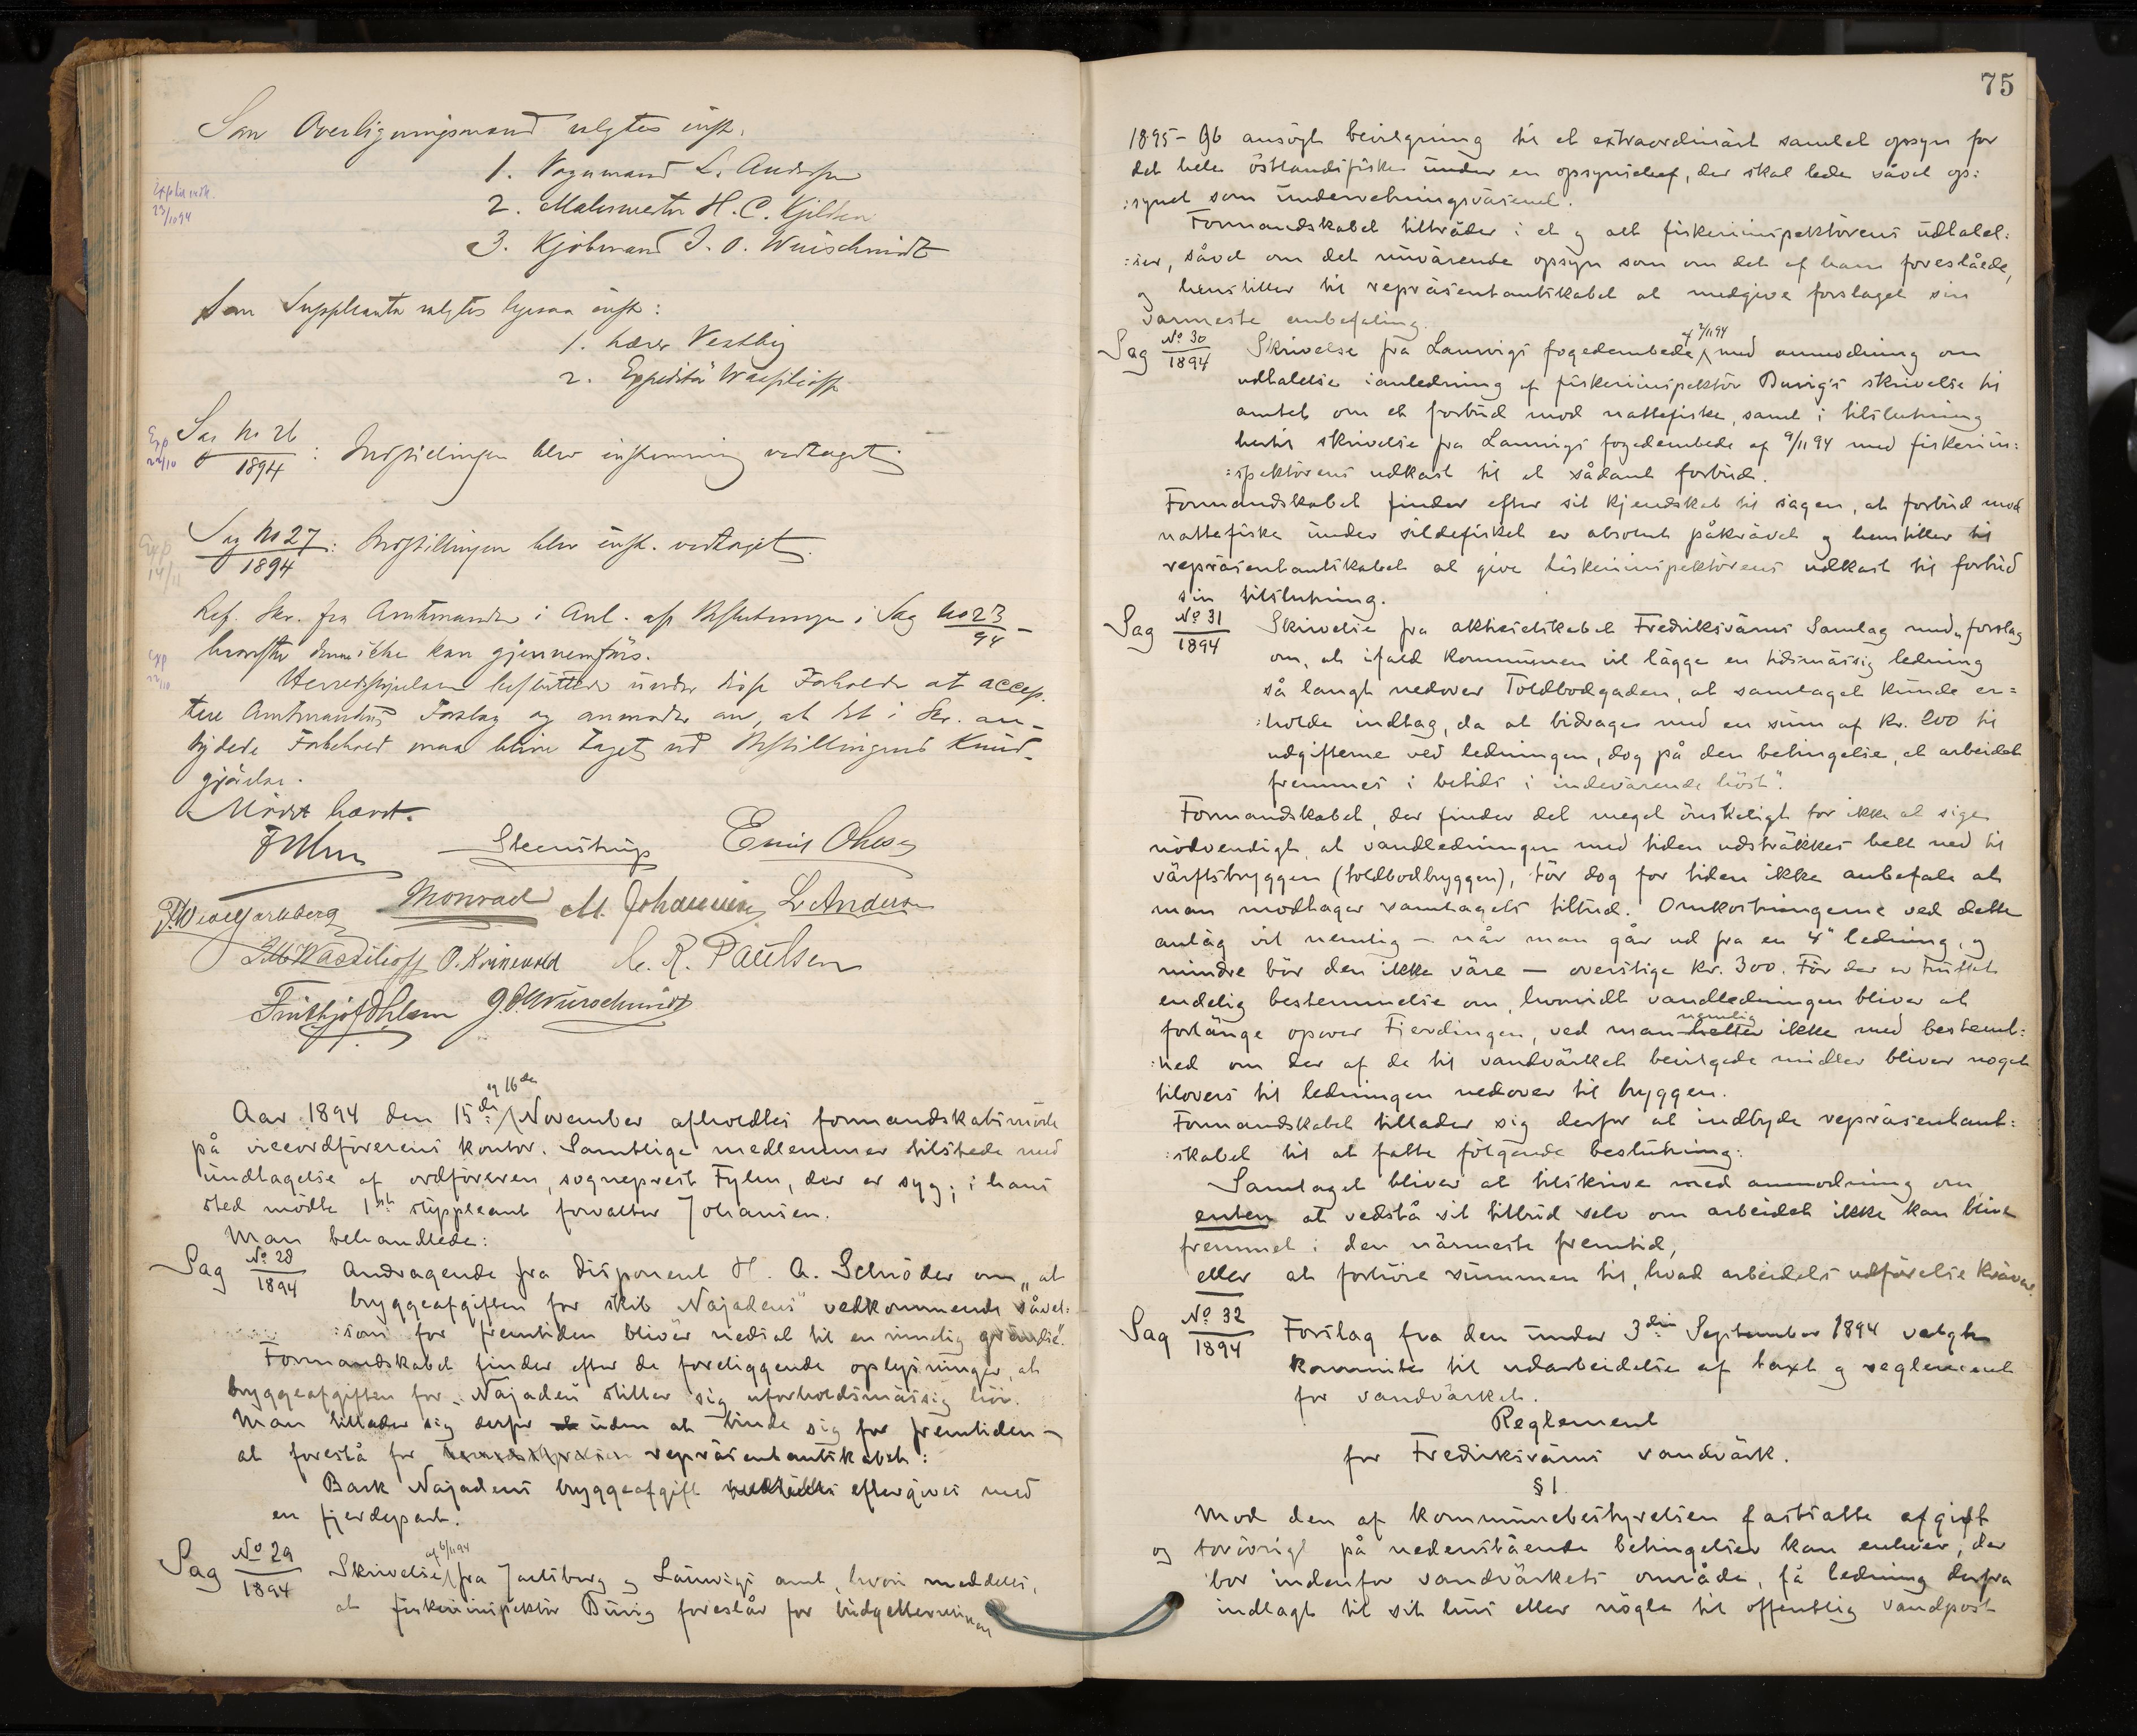 Som Overligningsmænd valgtes enst.
1. Vognmand L. Andersen
2. Malermester H. C. Kjilsen
3. Kjøbmand J. O. Wurschmidt
Exped. medd.
23/10 94
Som Suppleanter valgtes ligesaa enst:
1. Lærer Vestby
2. Expeditör Wassilioff
Exp
22/10
Sag No 26
1894 : Indstillingen blev enstemmig vedtaget.
Exp
14/11
Sag No 27
1894 : Indstillingen blev enst. vedtaget.
Ref. Skr. fra Amtmanden i Anl. af Beslutningen i Sag No 23/94 -
Exp
22/10
hvorefter denne ikke kan gjennemföres.
Herredsstyrelsen besluttede under disse Forholde at accep-
tere Amtmandens Forslag og anmoder om, at det i Skr. an-
tydede Forbehold maa blive taget ved Bestillingens Kund-
gjörelse.
Mödet hævet.
Fylm Steenstrup Emil Olsen
F. Wedel Jarlsberg Monrad M. Johannesen L. Andersen
Wassilioff O. Krinevold C. R. Paulsen
Frithjof Ohlsen J. O. Wurschmidt
og 16de
Aar 1894 den 15de November afholdtes formandskabsmöde
på viceordförerens kontor. Samtlige medlemmer tilstede med
undtagelse af ordföreren, sogneprest Fylm, der er syg; i hans
sted mödte 1ste suppleant forvalter Johansen.
Man behandlede:
Sag No 28
1894 Andragende fra disponent H. A. Schröder om „at
bryggeafgiften for skib „Najadens" vedkommende såvel:
:som for fremtiden bliver nedsat til en rimelig grændse".
Formandskabet finder efter de foreliggende oplysninger, at
bryggeafgiften for „Najaden stiller sig uforholdsmässig höi.
Man tillader sig derfor uden at binde sig for fremtiden –
at foreslå for herredsstyrelsen repräsentantskabet:
Bark Najadens bryggeafgift eftergives med
en fjerdepart.
af 6/11 94
Sag No 29
1894 Skrivelse fra Jarlsberg og Laurvigs amt, hvori meddeles,
at fiskeriinspektör Buvig foreslår for budgetterminen
75
1895-96 ansögt bevilgning til et extraordinärt samlet opsyn for
det hele östlandsfiske under en opsynschef, der skal lede såvel op:
:synet som undervetningsväsenet.
Formandskabet tilträder i et og alt fiskeriinspektörens udtalel:
:ser, såvel om det nuvärende opsyn som om det af ham foreslåede,
og henstiller til repräsentantskabet at medgive forslaget sin
varmeste anbefaling.
af 2/11 94
Sag No 30
1894 Skrivelse fra Laurvigs fogedembede med anmodning om
udtalelse ianledning af fiskeriinspektör Buvig's skrivelse til
amtet om et forbud mod nattefiske, samt i tilslutning
hertil skrivelse fra Laurvigs fogedembede af 9/11 94 med fiskeriin:
:spektörens udkast til et sådant forbud.
Formandskabet finder efter sit kjendskab til sagen, at forbud mod
nattefiske under sildefisket er absolut påkrävet og henstiller til
repräsentantskabet at give fiskeriinspektörens udkast til forbud
sin tilslutning.
Sag No 31
1894 Skrivelse fra aktieselskabet Fredriksvärns Samlag med „forslag
om, at ifald kommunen vil lägge en tidsmässig ledning
så langt nedover Toldbodgaden, at samlaget kunde er=
:holde indtag, da at bidrages med en sum af kr. 200 til
udgifterne ved ledningen, dog på den betingelse, at arbeidet
fremmes i betids i indevärende höst".
Formandskabet, der finder det meget önskeligt for ikke at sige
nödvendigt, at vandledningen med tiden udsträkkes helt ned til
värftsbryggen (toldbodbryggen), tör dog for tiden ikke anbefale at
man modtager samlagets tilbud. Omkostningerne ved dette
anläg vil nemlig – når man går ud fra en 4" ledning, og
mindre bör den ikke väre – overstige kr. 300. För der er truffet
endelig bestemmelse om, hvorvidt vandledningen bliver at
nemlig
forlänge opover Fjerdingen, ved man heller ikke med bestemt:
:hed om der af de til vandvärket bevilgede midler bliver noget
tilovers til ledningen nedover til bryggen.
Formandskabet tillader sig derfor at indbyde repräsentant:
:skabet til at fatte fölgende beslutning:
Samlaget bliver at tilskrive med anmodning om
enten at vedstå sit tilbud selv om arbeidet ikke kan blive
fremmet i den närmeste fremtid,
eller at forhöie summen til, hvad arbeidets udförelse kräver.
Sag No 32
1894 Forslag fra den under 3die September 1894 valgte
komite til udarbeidelse af taxt og reglement
for vandvärket.
Reglement
for Fredriksvärns vandvärk.
§ 1
Mod den af kommunebestyrelsen fastsatte afgift
og forövrigt på nedenstående betingelser kan enhver, der
bor indenfor vandvärkets område, få ledning derfra
indlagt til sit hus eller nögle til offentlig vandpost